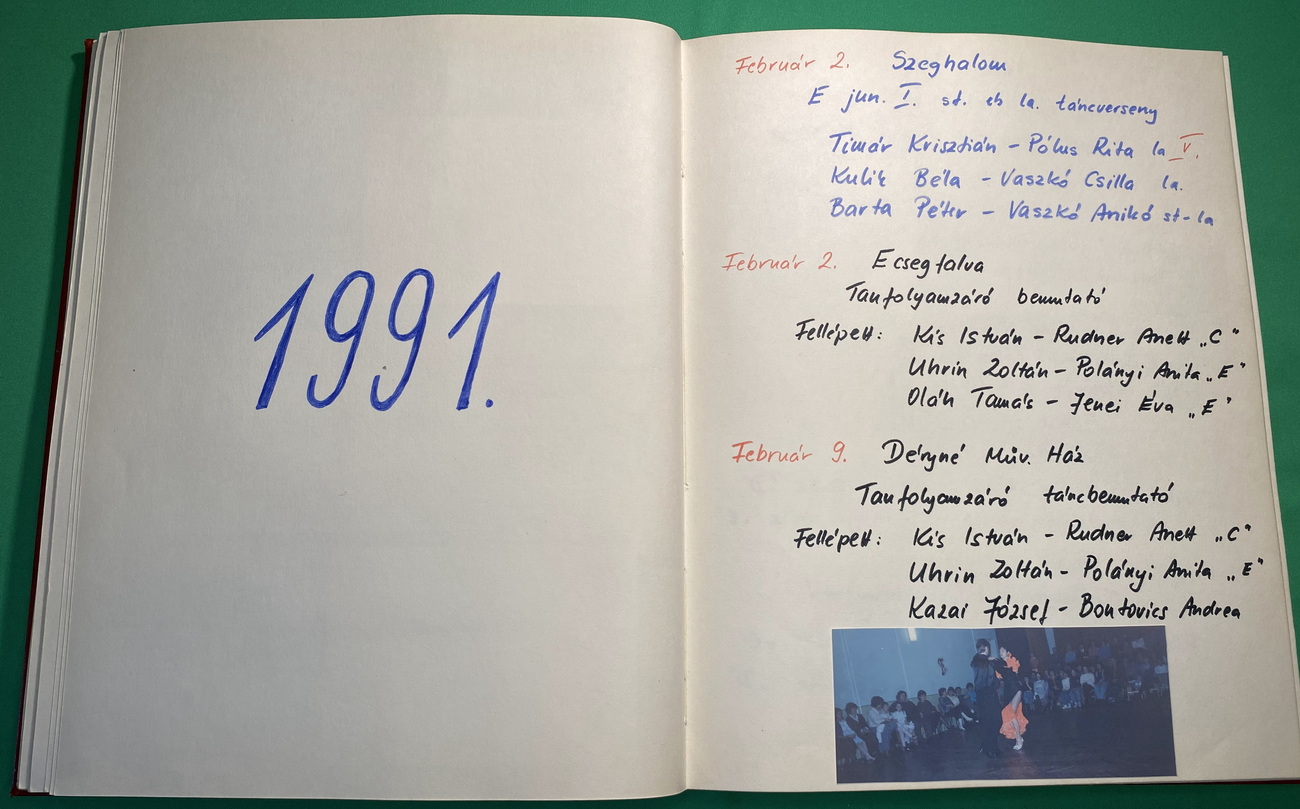 1991.
Február 2. Szeghalom
E jun. I. st. és la. táncverseny
Timár Krisztián - Pólus Rita la V.
Kulik Béla - Vaszkó Csilla la.
Barta Péter - Vaszkó Anikó st-la
Február 2. Ecsegfalva
Tanfolyamzáró bemutató
Fellépett: Kis István - Rudner Anett „C"
Uhrin Zoltán - Polányi Anita „E"
Oláh Tamás - Jenei Éva „E"
Február 9. Déryné Műv. Ház
Tanfolyamzáró táncbemutató
Fellépett: Kis István - Rudner Anett „C"
Uhrin Zoltán - Polányi Anita „E"
Kazai József - Bontovics Andrea